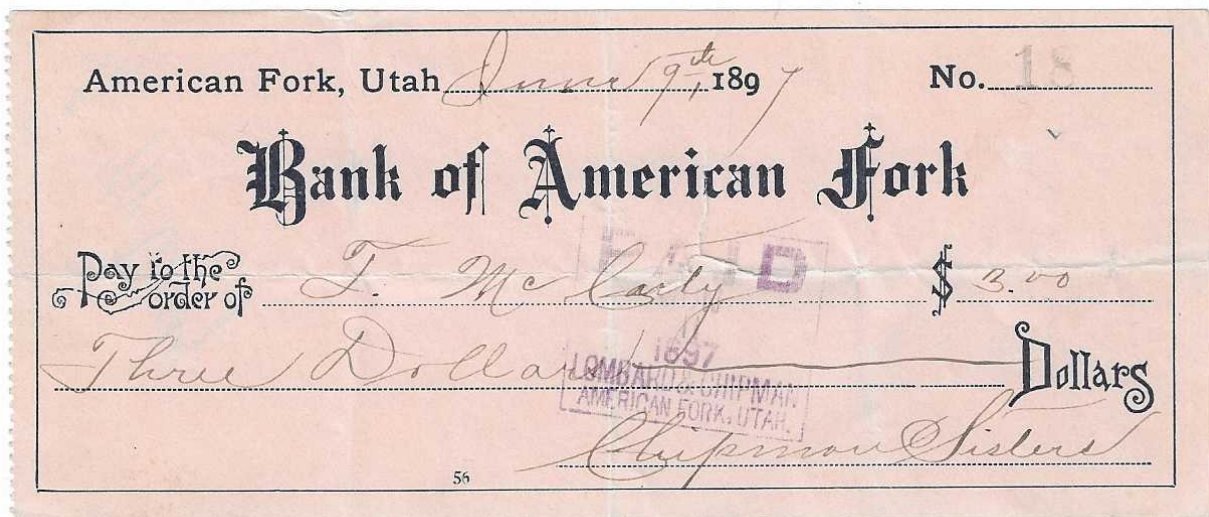 American Fork, Utah June 9th, 1897 No. 18
Bank of American Fork
Pay to the order of T. McCarty $ 3.00
PAID
Three Dollars Dollars
1897
LOMBARD & CHIPMAN
AMERICAN FORK, UTAH.
Chipman Sisters
56